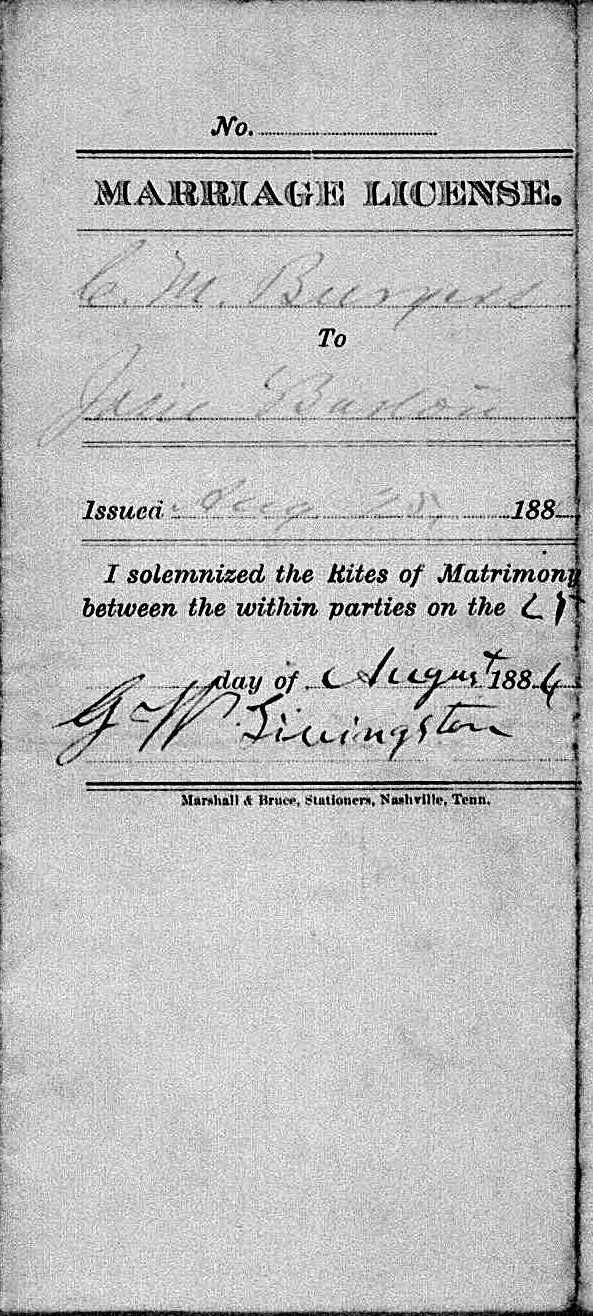 No.
MARRIAGE LICENSE.
C. M. Burgess
To
Issued Aug 25, 188
I solemnized the Rites of Matrimony
between the within parties on the 25
day of August 1884
G W Livingston
Marshall & Bruce, Stationers, Nashville, Tenn.